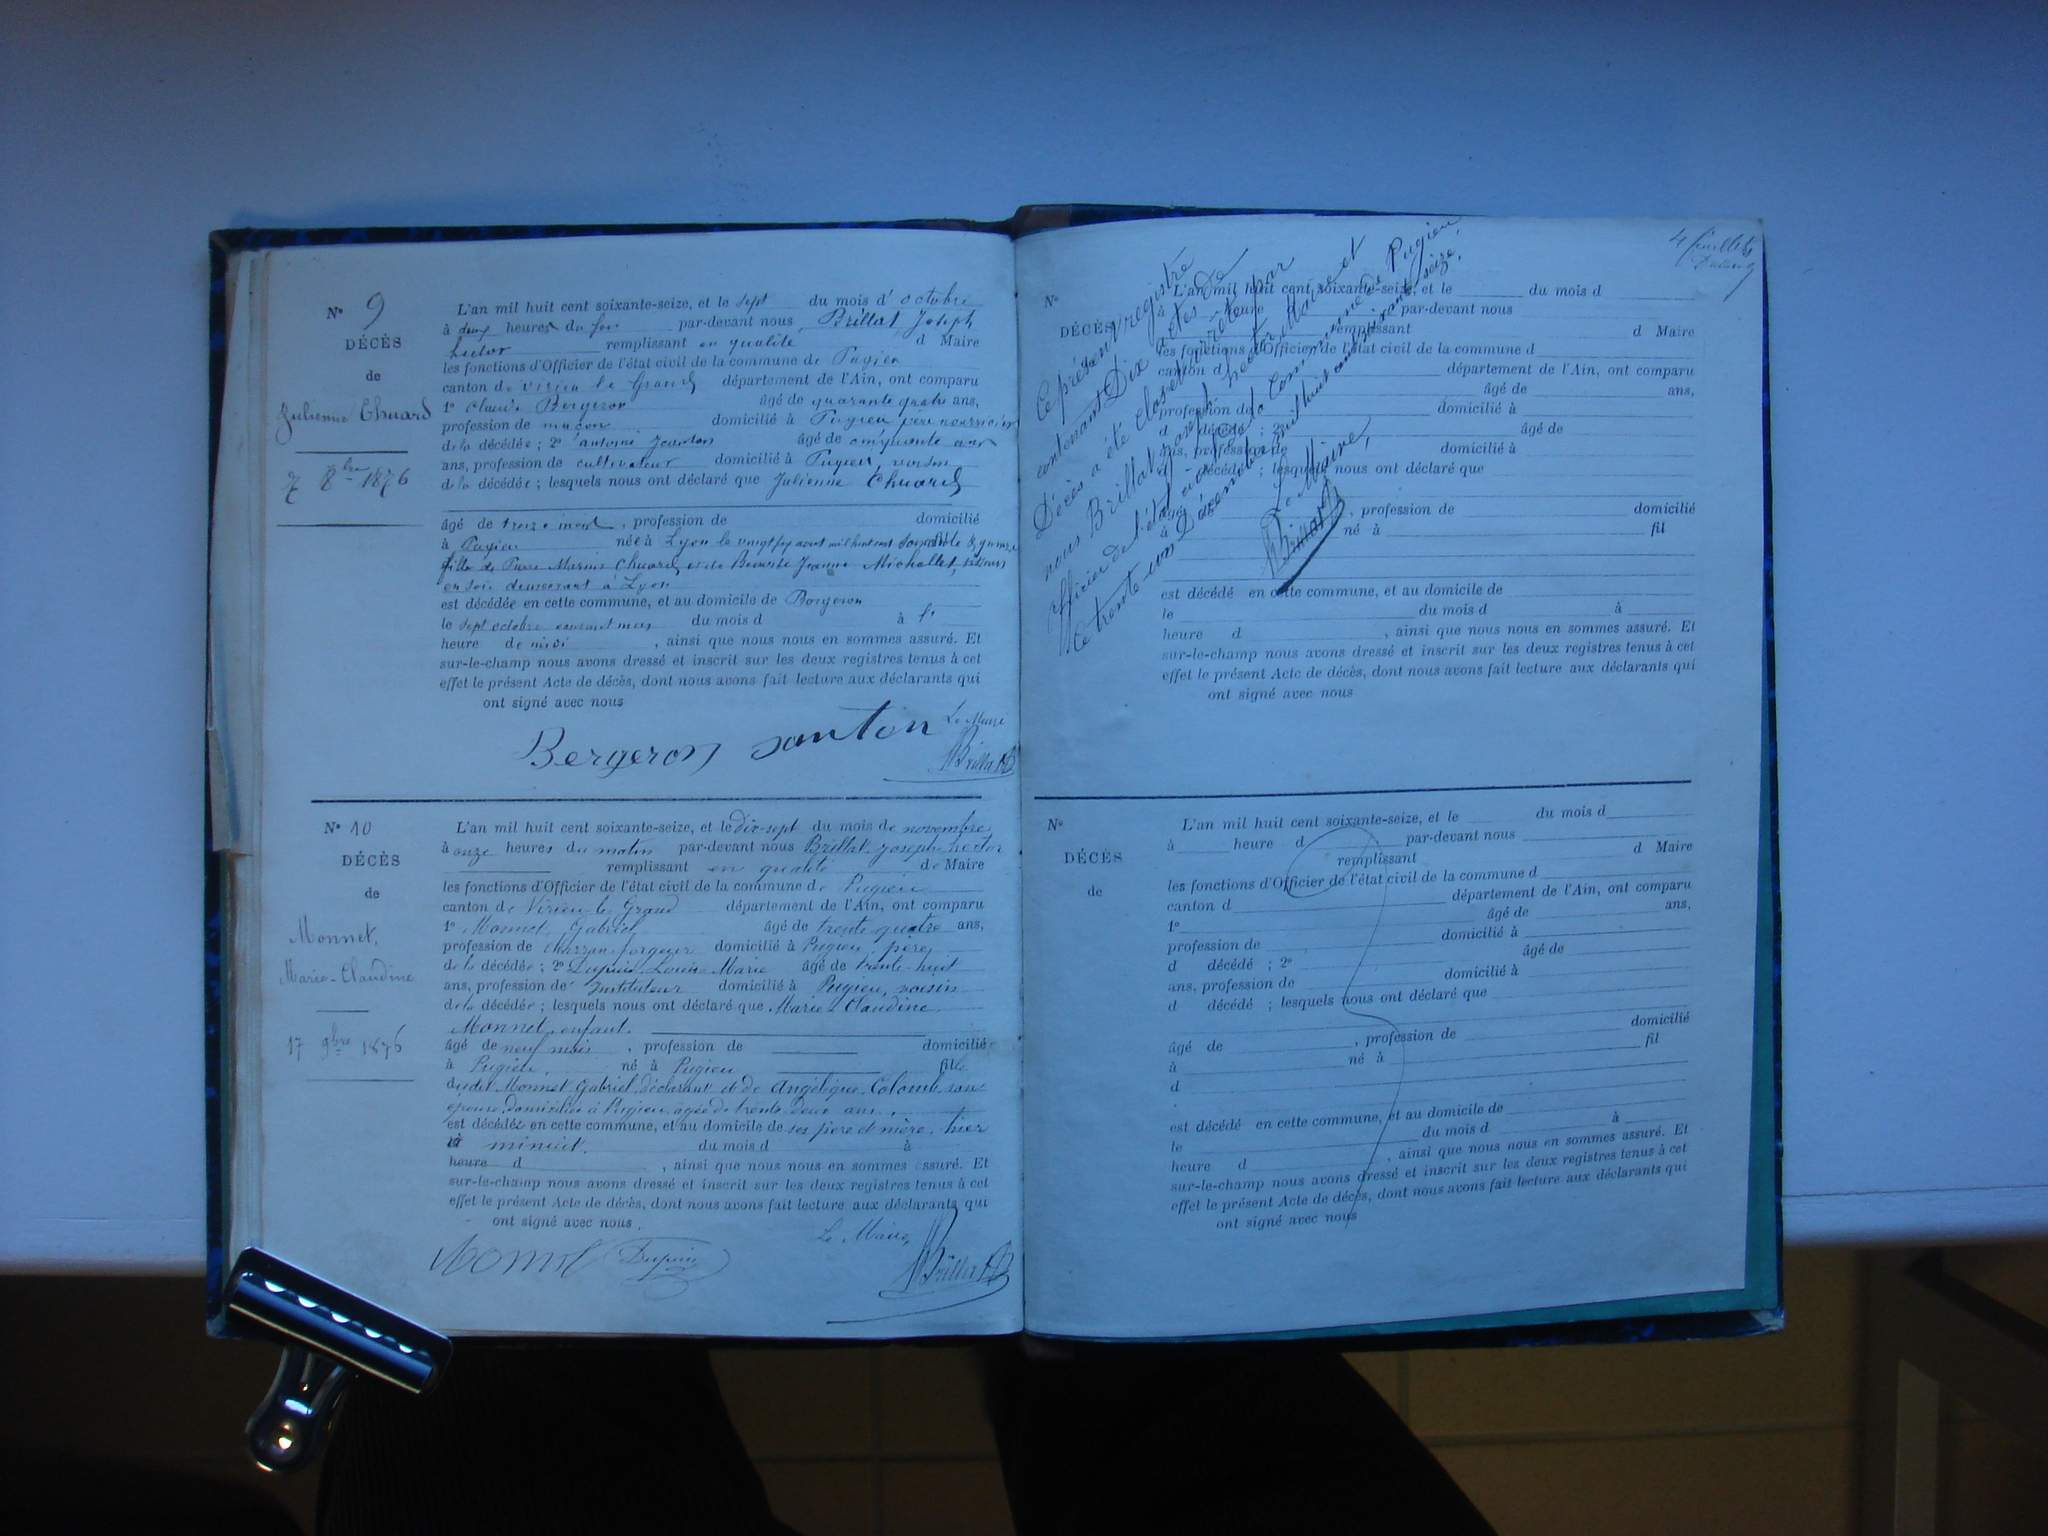 N° 9
DÉCÈS
de
Julienne Chuard
7 8bre 1876
L'an mil huit cent soixante-seize, et le sept du mois d'octobre
à deux heures du soir par-devant nous Brillat Joseph
hector remplissant en qualité d Maire
les fonctions d'Officier de l'état civil de la commune de Pugieu
canton de Virieu le Grand département de l'Ain, ont comparu
1° Claude Bergeron âgé de quarante quatre ans,
profession de maçon domicilié à Pugieu père nourricier
de la décédée ; 2° antoine Jeanton âgé de cinquante ans
ans, profession de cultivateur domicilié à Pugieu, voisin
de la décédée ; lesquels nous ont déclaré que Julienne Chuard
âgé de treize mois, profession de domicilié
à Pugieu née à Lyon le vingt six aout mil huit cent soixante & quinze
fille de Pierre Marius Chuard et de Benoite Jeanne Michallet,
en soie demeurant à Lyon
est décédée en cette commune, et au domicile de Bergeron
le sept octobre courant mois du mois d à
heure de midi , ainsi que nous nous en sommes assuré. Et
sur-le-champ nous avons dressé et inscrit sur les deux registres tenus à cet
effet le présent Acte de décès, dont nous avons fait lecture aux déclarants qui
ont signé avec nous
Le Maire
Bergeron Janton Brillat
N° 10
DÉCÈS
de
Monnet,
Marie-Claudine
17 9bre 1876
L'an mil huit cent soixante-seize, et le dix-sept du mois de novembre
à onze heures du matin par-devant nous Brillat Joseph hector
remplissant en qualité de Maire
les fonctions d'Officier de l'état civil de la commune de Pugieu
canton de Virieu-le-Grand département de l'Ain, ont comparu
1° Monnet, Gabriel âgé de trente quatre ans,
profession de charron forgeur domicilié à Pugieu, père
de la décédée ; 2° Dupuis Louis Marie âgé de trente-huit
ans, profession de Instituteur domicilié à Pugieu, voisin
de la décédée ; lesquels nous ont déclaré que Marie-Claudine
Monnet, enfant,
âgé de neuf mois , profession de domicilié
à Pugieu, né à Pugieu fille
dudit Monnet Gabriel déclarant et de Angélique Colomb, son
épouse, domiciliée à Pugieu, agée de trente-deux ans,
est décédée en cette commune, et au domicile de ses père et mère, hier
à minuit. du mois d à
heure d , ainsi que nous nous en sommes assuré. Et
sur-le-champ nous avons dressé et inscrit sur les deux registres tenus à cet
effet le présent Acte de décès, dont nous avons fait lecture aux déclarants qui
ont signé avec nous.
Le Maire,
Monnet Dupuis Brillat
4 feuillets
Ce présent registre
contenant Dix actes de
Décès a été clos et arrêté par
nous Brillat Joseph hector Maire et
officier de l'état civil de la Commune de Pugieu,
Ce trente un Décembre mil huit cent soixante seize.
Le Maire,
Brillat
N°
DÉCÈS
L'an mil huit cent soixante-seize, et le du mois d
à heure par-devant nous
remplissant d Maire
les fonctions d'Officier de l'état civil de la commune d
canton d département de l'Ain, ont comparu
âgé de ans,
profession de domicilié à
d décédé ; 2° âgé de
ans, profession de domicilié à
d décédé ; lesquels nous ont déclaré que
âgé , profession de domicilié
à né à fil
est décédé en cette commune, et au domicile de
le du mois d à
heure d , ainsi que nous nous en sommes assuré. Et
sur-le-champ nous avons dressé et inscrit sur les deux registres tenus à cet
effet le présent Acte de décès, dont nous avons fait lecture aux déclarants qui
ont signé avec nous
N°
DÉCÈS
de
L'an mil huit cent soixante-seize, et le du mois d
à heure d par-devant nous
remplissant d Maire
les fonctions d'Officier de l'état civil de la commune d
canton d département de l'Ain, ont comparu
1° âgé de ans,
profession de domicilié à
d décédé ; 2° âgé de
ans, profession de domicilié à
d décédé ; lesquels nous ont déclaré que
âgé de , profession de domicilié
à né à fil
d
est décédé en cette commune, et au domicile de
le du mois d à
heure d , ainsi que nous nous en sommes assuré. Et
sur-le-champ nous avons dressé et inscrit sur les deux registres tenus à cet
effet le présent Acte de décès, dont nous avons fait lecture aux déclarants qui
ont signé avec nous